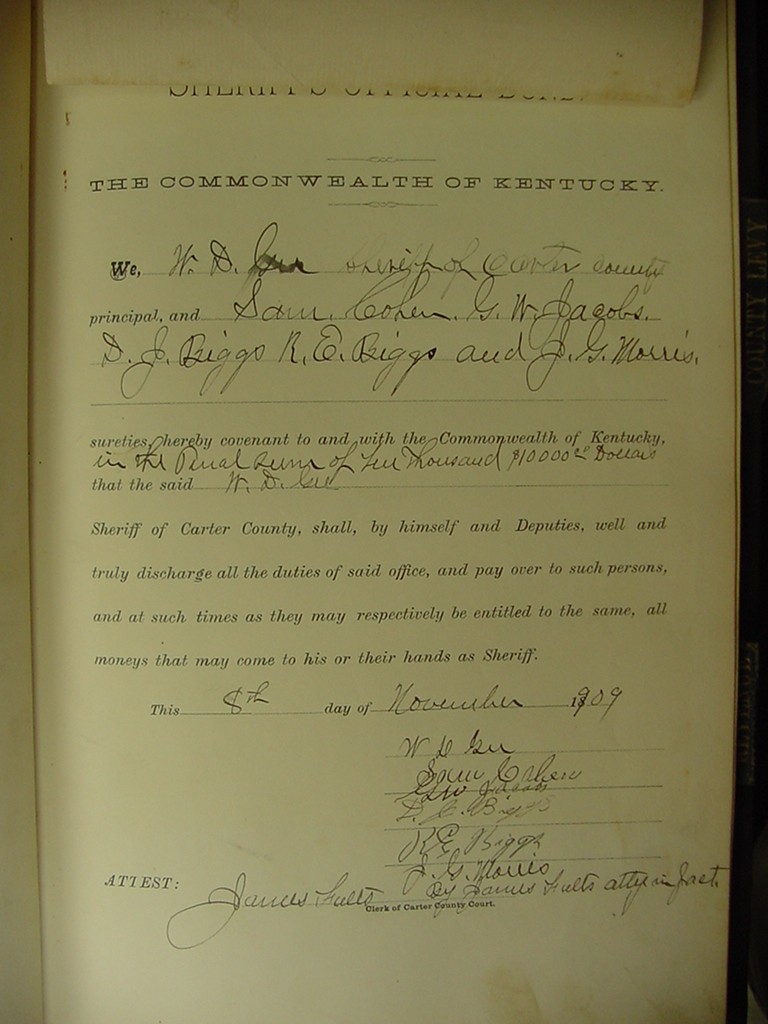 SHERIFF'S OFFICIAL BOND.
THE COMMONWEALTH OF KENTUCKY.
We, W. D. Gee Sheriff of Carter County
principal, and Sam. Cohen. G. W. Jacobs.
D. J. Biggs R. E. Biggs and J. G. Morris.
sureties, hereby covenant to and with the Commonwealth of Kentucky,
in the Penal sum of Ten Thousand $10000 Dollars
that the said W. D. Gee
Sheriff of Carter County, shall, by himself and Deputies, well and
truly discharge all the duties of said office, and pay over to such persons,
and at such times as they may respectively be entitled to the same, all
moneys that may come to his or their hands as Sheriff.
This 8th day of November 1909
W D Gee
Sam Cohen
G W Jacobs
D. J. Biggs
R E Biggs
J. G. Morris
By James Fults atty in fact.
ATTEST: James Fults
Clerk of Carter County Court.
COUNTY LEVY